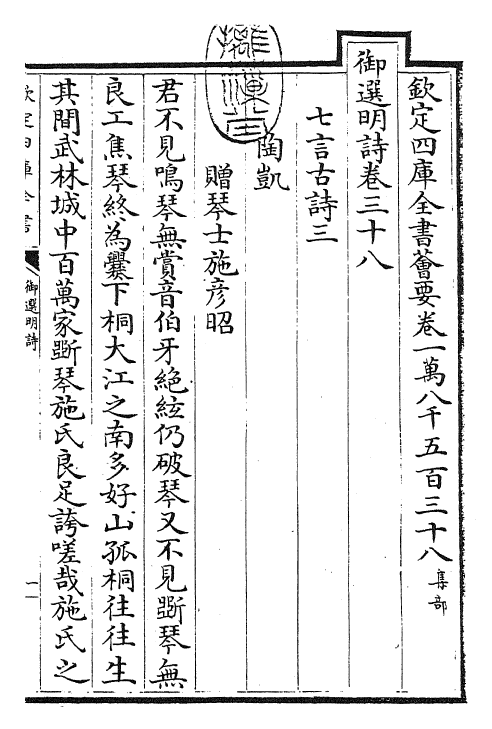 欽定四庫全書薈要卷一萬八千五百三十八 集部
御選明詩卷三十八
七言古詩三
陶凱
贈琴士施彥昭
君不見鳴琴無賞音伯牙絶絃仍破琴又不見斲琴無
良工焦琴終為爨下桐大江之南多好山孤桐往往生
其間武林城中百萬家斲琴施氏良足誇嗟哉施氏之
欽定四庫全書
御選明詩
一